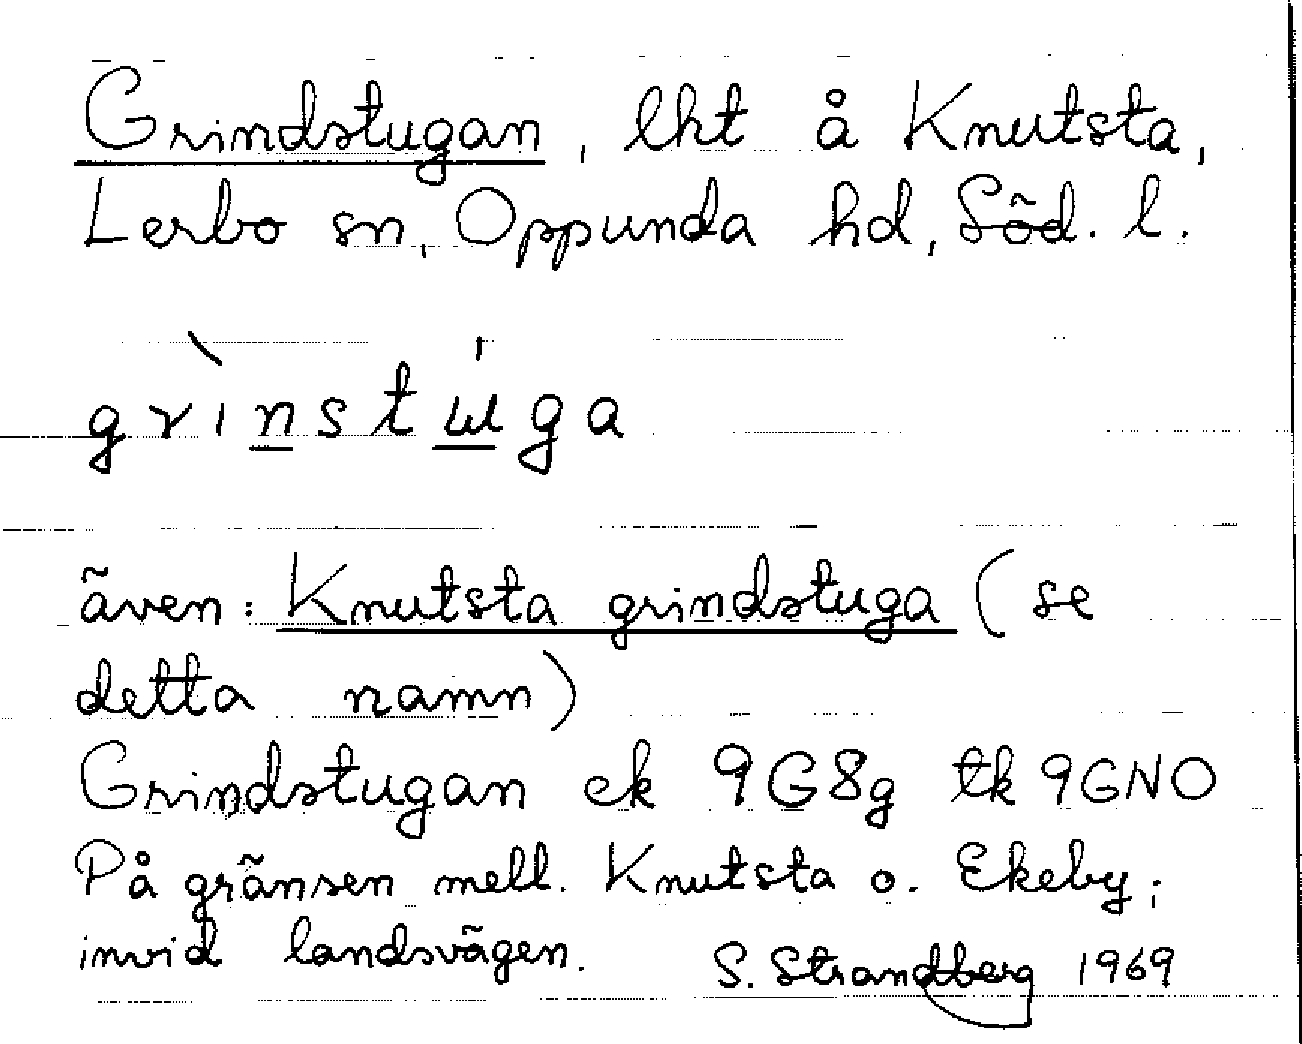 Grindstugan, lht å Knutsta,
Lerbo sn, Oppunda hd, Söd. l.
grìnstɯ́ga
även: Knutsta grindstuga (se
detta namn)
Grindstugan ek 9G8g tk 9GNO
På gränsen mell. Knutsta o. Ekeby;
invid landsvägen. S. Strandberg 1969